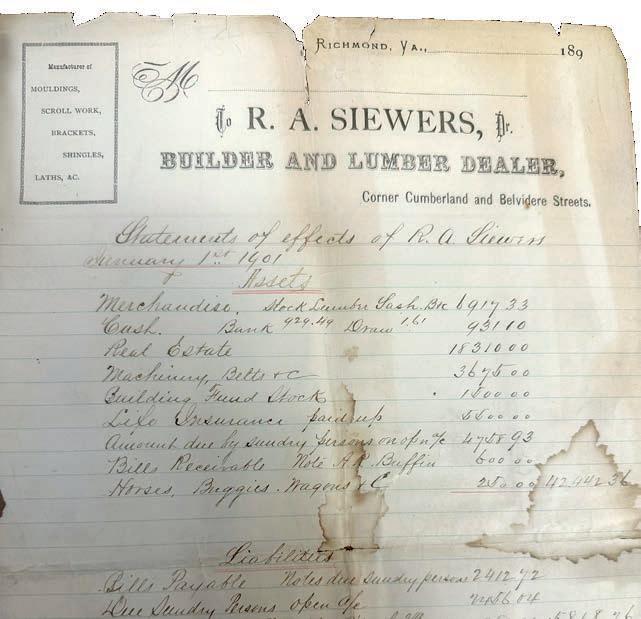 Manufacturer of
MOULDINGS,
SCROLL WORK,
BRACKETS,
SHINGLES,
LATHS, &C.
RICHMOND, VA., 189
M
To R. A. SIEWERS, Dr.
BUILDER AND LUMBER DEALER,
Corner Cumberland and Belvidere Streets.
Statements of effects of R. A. Siewers
January 1st 1901
Assets
Merchandise, Stock Lumber Sash. Etc 6917 33
Cash. Bank 929.49 Draw 1.61 931 10
Real Estate 18310 00
Machinery, Belts &c 3675 00
Building Fund Stock 1500 00
Life Insurance paid up 5500 00
Amount due by sundry persons on op n/c 4758 93
Bills Receivable Note A.R. Buffin 600 00
Horses, Buggies. Wagons &C 250 00 42442 36
Liabilities
Bills Payable Notes due Sundry persons 2412 72
Due Sundry Persons open a/c